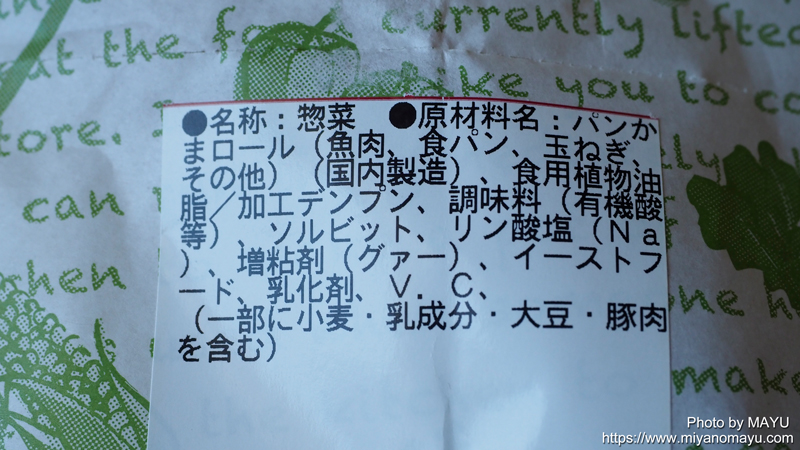 at the fo a currently lifted
Like you to co
tore. I
can
when
●名称：惣菜　●原材料名：パンか
まロール（魚肉、食パン、玉ねぎ、
その他）（国内製造）、食用植物油
脂／加工デンプン、調味料（有機酸
等）、ソルビット、リン酸塩（Ｎａ
）、増粘剤（グァー）、イーストフ
ード、乳化剤、Ｖ．Ｃ、
（一部に小麦・乳成分・大豆・豚肉
を含む）
make
Photo by MAYU
https://www.miyanomayu.com/